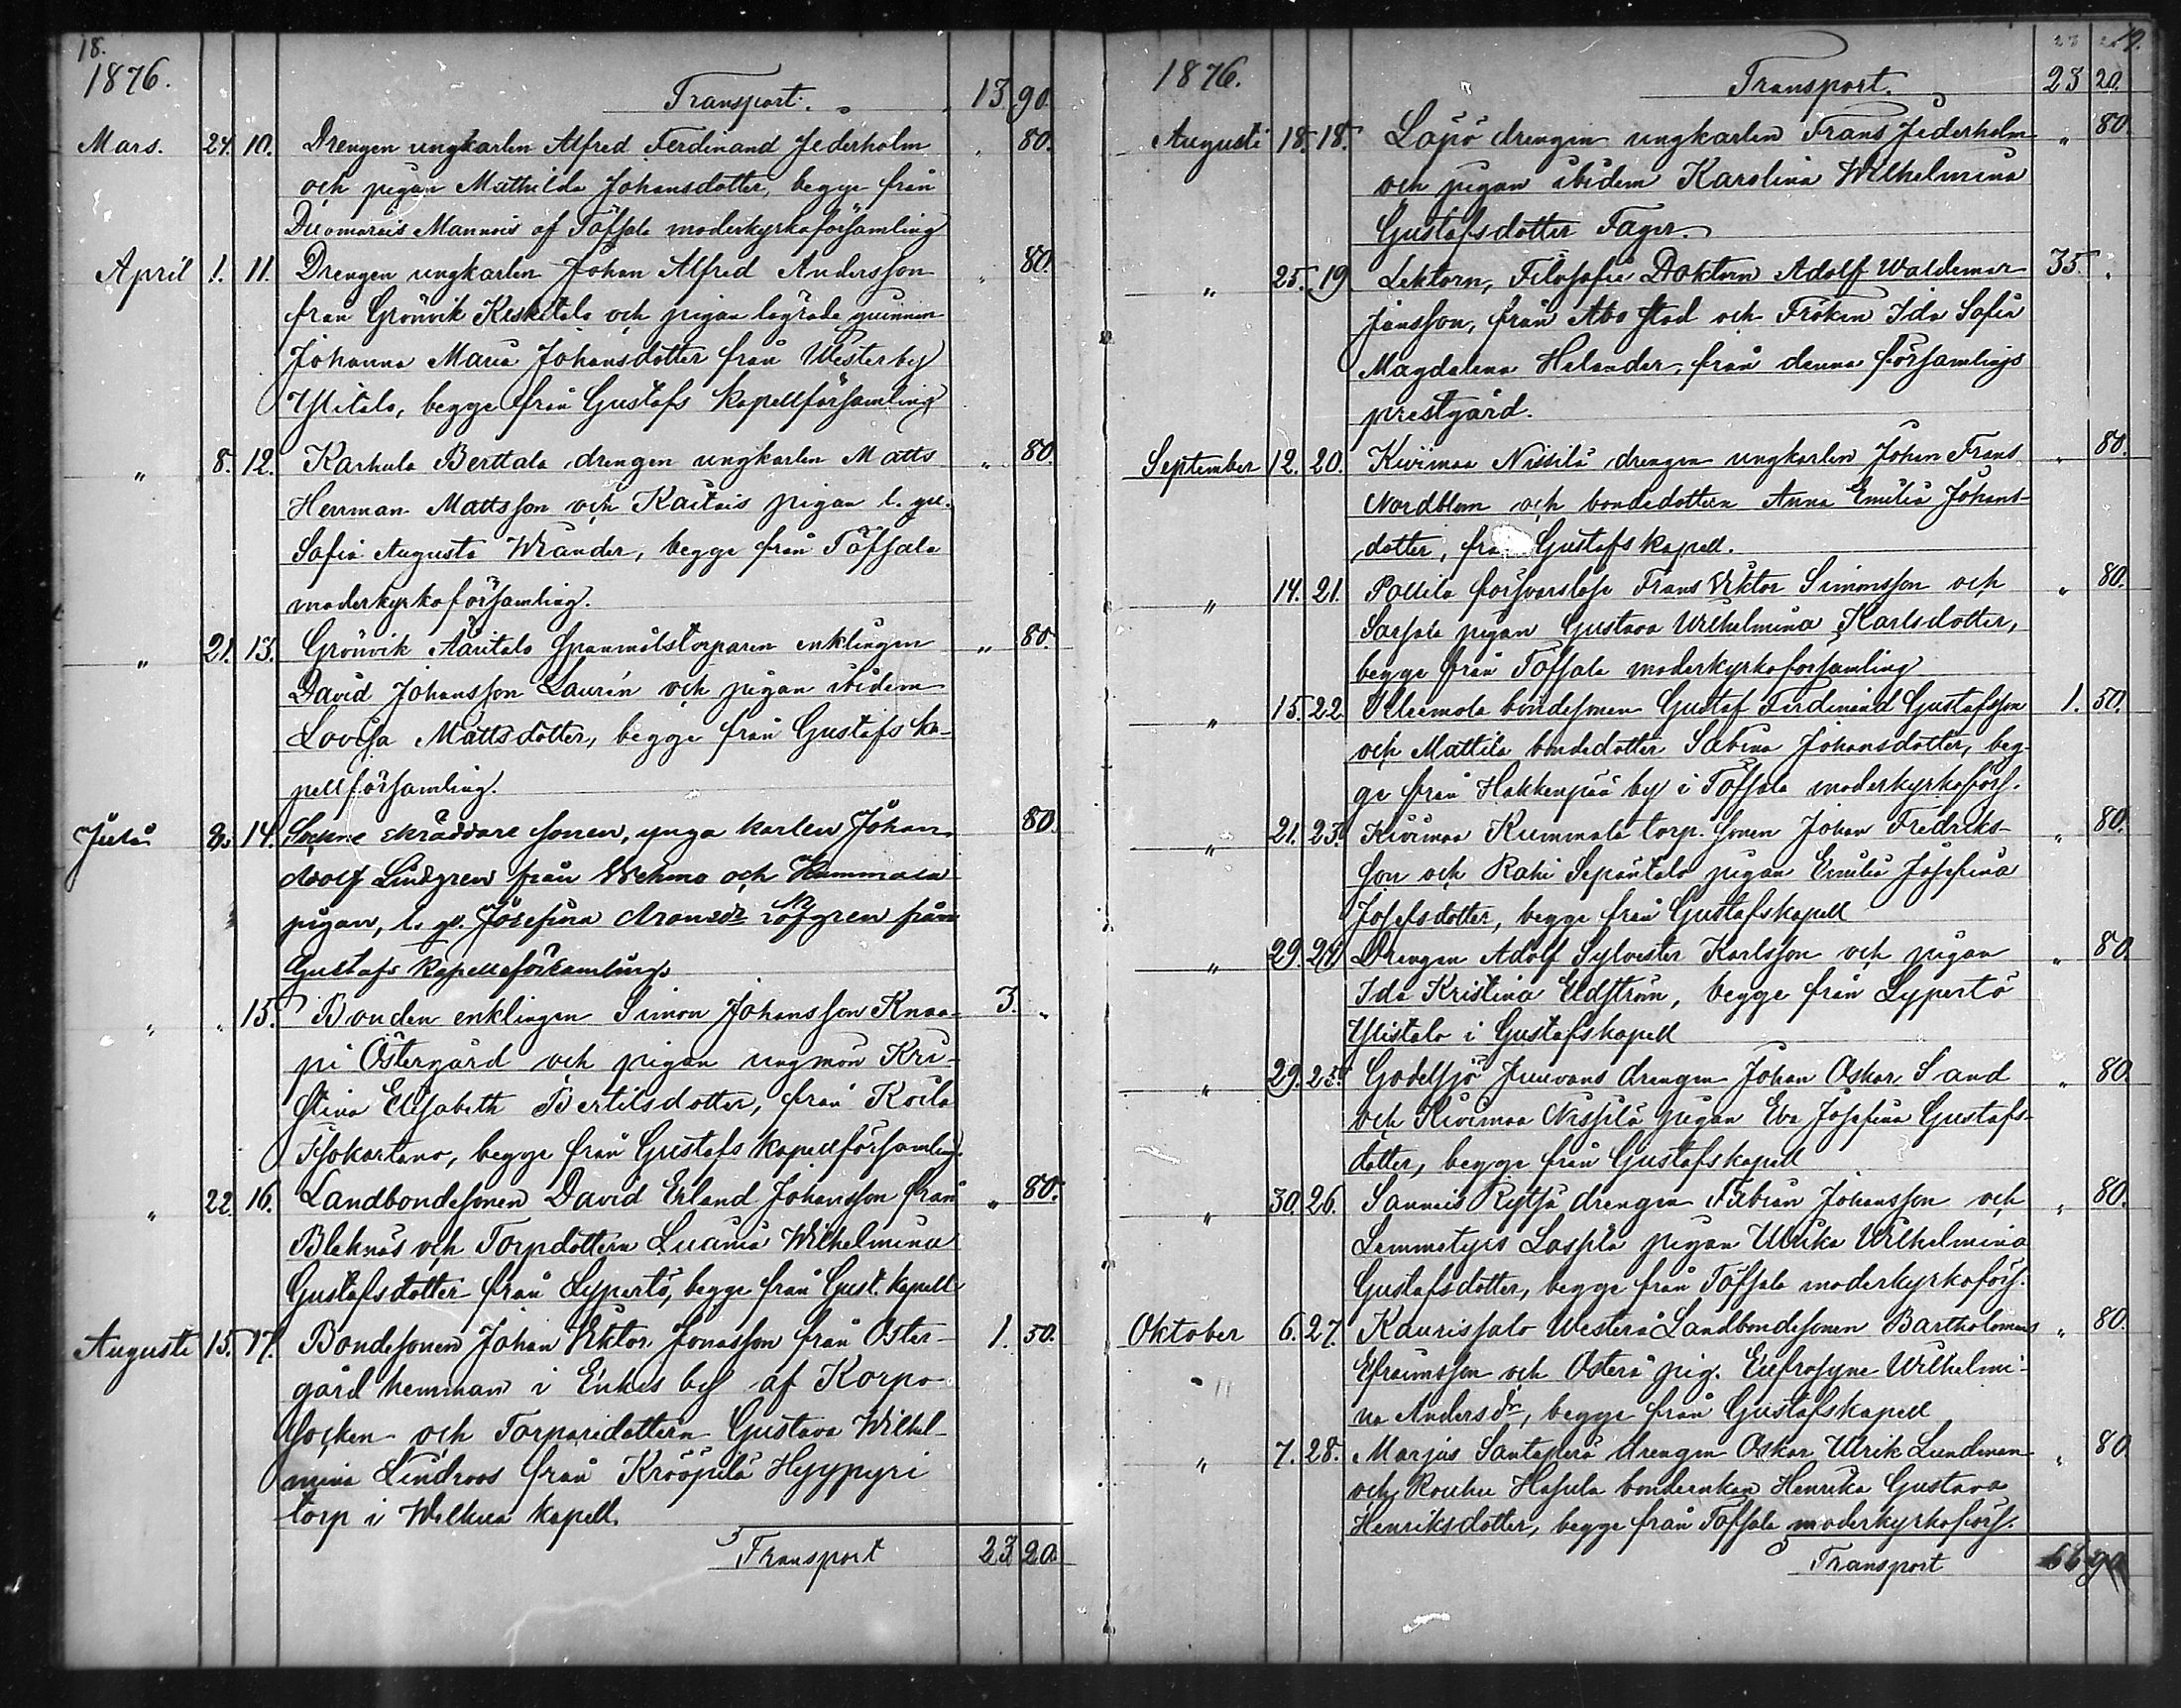 18.
1876.
Transport. 13 90.
Mars. 24. 10. Drengen ungkarlen Alfred Ferdinand Jederholm „ 80.
och pigan Mathilda Johansdotter, begge från
Mannois af Töfsala moderkyrkoförsamling
April 1. 11. Drengen ungkarlen Johan Alfred Andersson „ 80.
från Grönvik Keskitalo och pigan lägrade quinnan
Johanna Maria Johansdotter från Westerby
Ylitalo, begge från Gustafs kapellförsamling
„ 8. 12. Karhula Berttala drengen ungkarlen Matts „ 80.
Herrman Mattsson och Kaitais pigan l. qu.
Sofia Augusta Wrander, begge från Töfsala
moderkyrkoförsamling.
„ 21. 13. Grönvik Ääritalo spanmålstorparen enklingen „ 80.
David Johansson Laurén och pigan ibidem
Lovisa Mattsdotter, begge från Gustafs ka-
pellförsamling.
Juli 8. 14. Sockne skräddare sonen, ynga karlen Johan 80.
Adolf Lindgren från Wehmo och Kummala
pigan, l. q. Josefina Aronsdr Löfgren från
Gustafs kapellsförsamling
„ „ 15. Bonden enklingen Simon Johansson Knaa- 3. „
pi Östergård och pigan ungmön Kri-
stina Elisabeth Bertilsdotter, från Koila
Isokartano, begge från Gustafs kapellförsamling.
„ 22. 16. Landbondesonen David Erland Johansson från „ 80.
Bleknäs och Torpdottern Lucina Wilhelmina
Gustafsdotter från Lypertö, begge från Gust. kapell
Augusti 15. 17. Bondesonen Johan Viktor Jonasson från Öster- 1. 50.
gård hemman i Enkis by af Korpo
socken och Torparedottern Gustava Wilhel-
mina Lindroos från Krööpilä Hyypyri
torp i Welkua kapell.
Transport 23 20.
19.
1876.
Transport. 23 20.
Augusti 18. 18. Lapö drengen ungkarlen Frans Jederholm „ 80
och pigan ibidem Karolina Wilhelmina
Gustafsdotter Fager.
„ 25. 19 Lektorn, Filosofie Doktorn Adolf Waldemar 35. „
Jansson, från Åbo stad och Fröken Ida Sofia
Magdalena Helander, från denna församlings
prestgård.
September 12. 20. Kivimaa Nissilä drengen ungkarlen Johan Frans „ 80.
Nordblom och bondedottern Anna Emilia Johans-
dotter, från Gustafs kapell.
„ 14. 21. Pollila försvarslöse Frans Viktor Simonsson och „ 80.
Sarsala pigan Gustava Wilhelmina Karlsdotter,
begge från Töfsala moderkyrkoförsamling
„ 15. 22 bondesonen Gustaf Ferdinand Gustafsson 1. 50.
och Mattila bondedotter Sabina Johansdotter, beg-
ge från Hakkenpää by i Töfsala moderkyrkoförs.
„ 21. 23. Kivimaa Kummala torp. sonen Johan Fredriks- „ 80.
son och Rahi Sepäntalo pigan Emilia Josefina
Josefsdotter, begge från Gustafskapell
„ 29. 24. Drengen Adolf Sylvester Karlsson och pigan „ 80
Ida Kristina Eldström, begge från Lypertö
Ylistalo i Gustafskapell
„ 29. 25. Godelsjö Juuvans drengen Johan Oskar Sand „ 80.
och Kivimaa Nissilä pigan Eva Josefina Gustafs-
dotter, begge från Gustafskapell
„ 30. 26. Sannais Rytsä drengen Fabian Johansson och „ 80.
Lemmetyis Lassila pigan Ulrika Wilhelmina
Gustafsdotter, begge från Töfsala moderkyrkoförs.
Oktober 6. 27. Kaurissalo Westerå Landbondesonen Bartholomeus „ 80.
Efraimsson och Österå pig. Eufrosyne Wilhelmi-
na Andersdr, begge från Gustafskapell
„ 7. 28. Marjus Santaperä drengen Oskar Ulrik Lundman „ 80
och Rouhu Hasula bondeenkan Henrika Gustava
Henriksdotter, begge från Töfsala moderkyrkoförs.
Transport 66 90